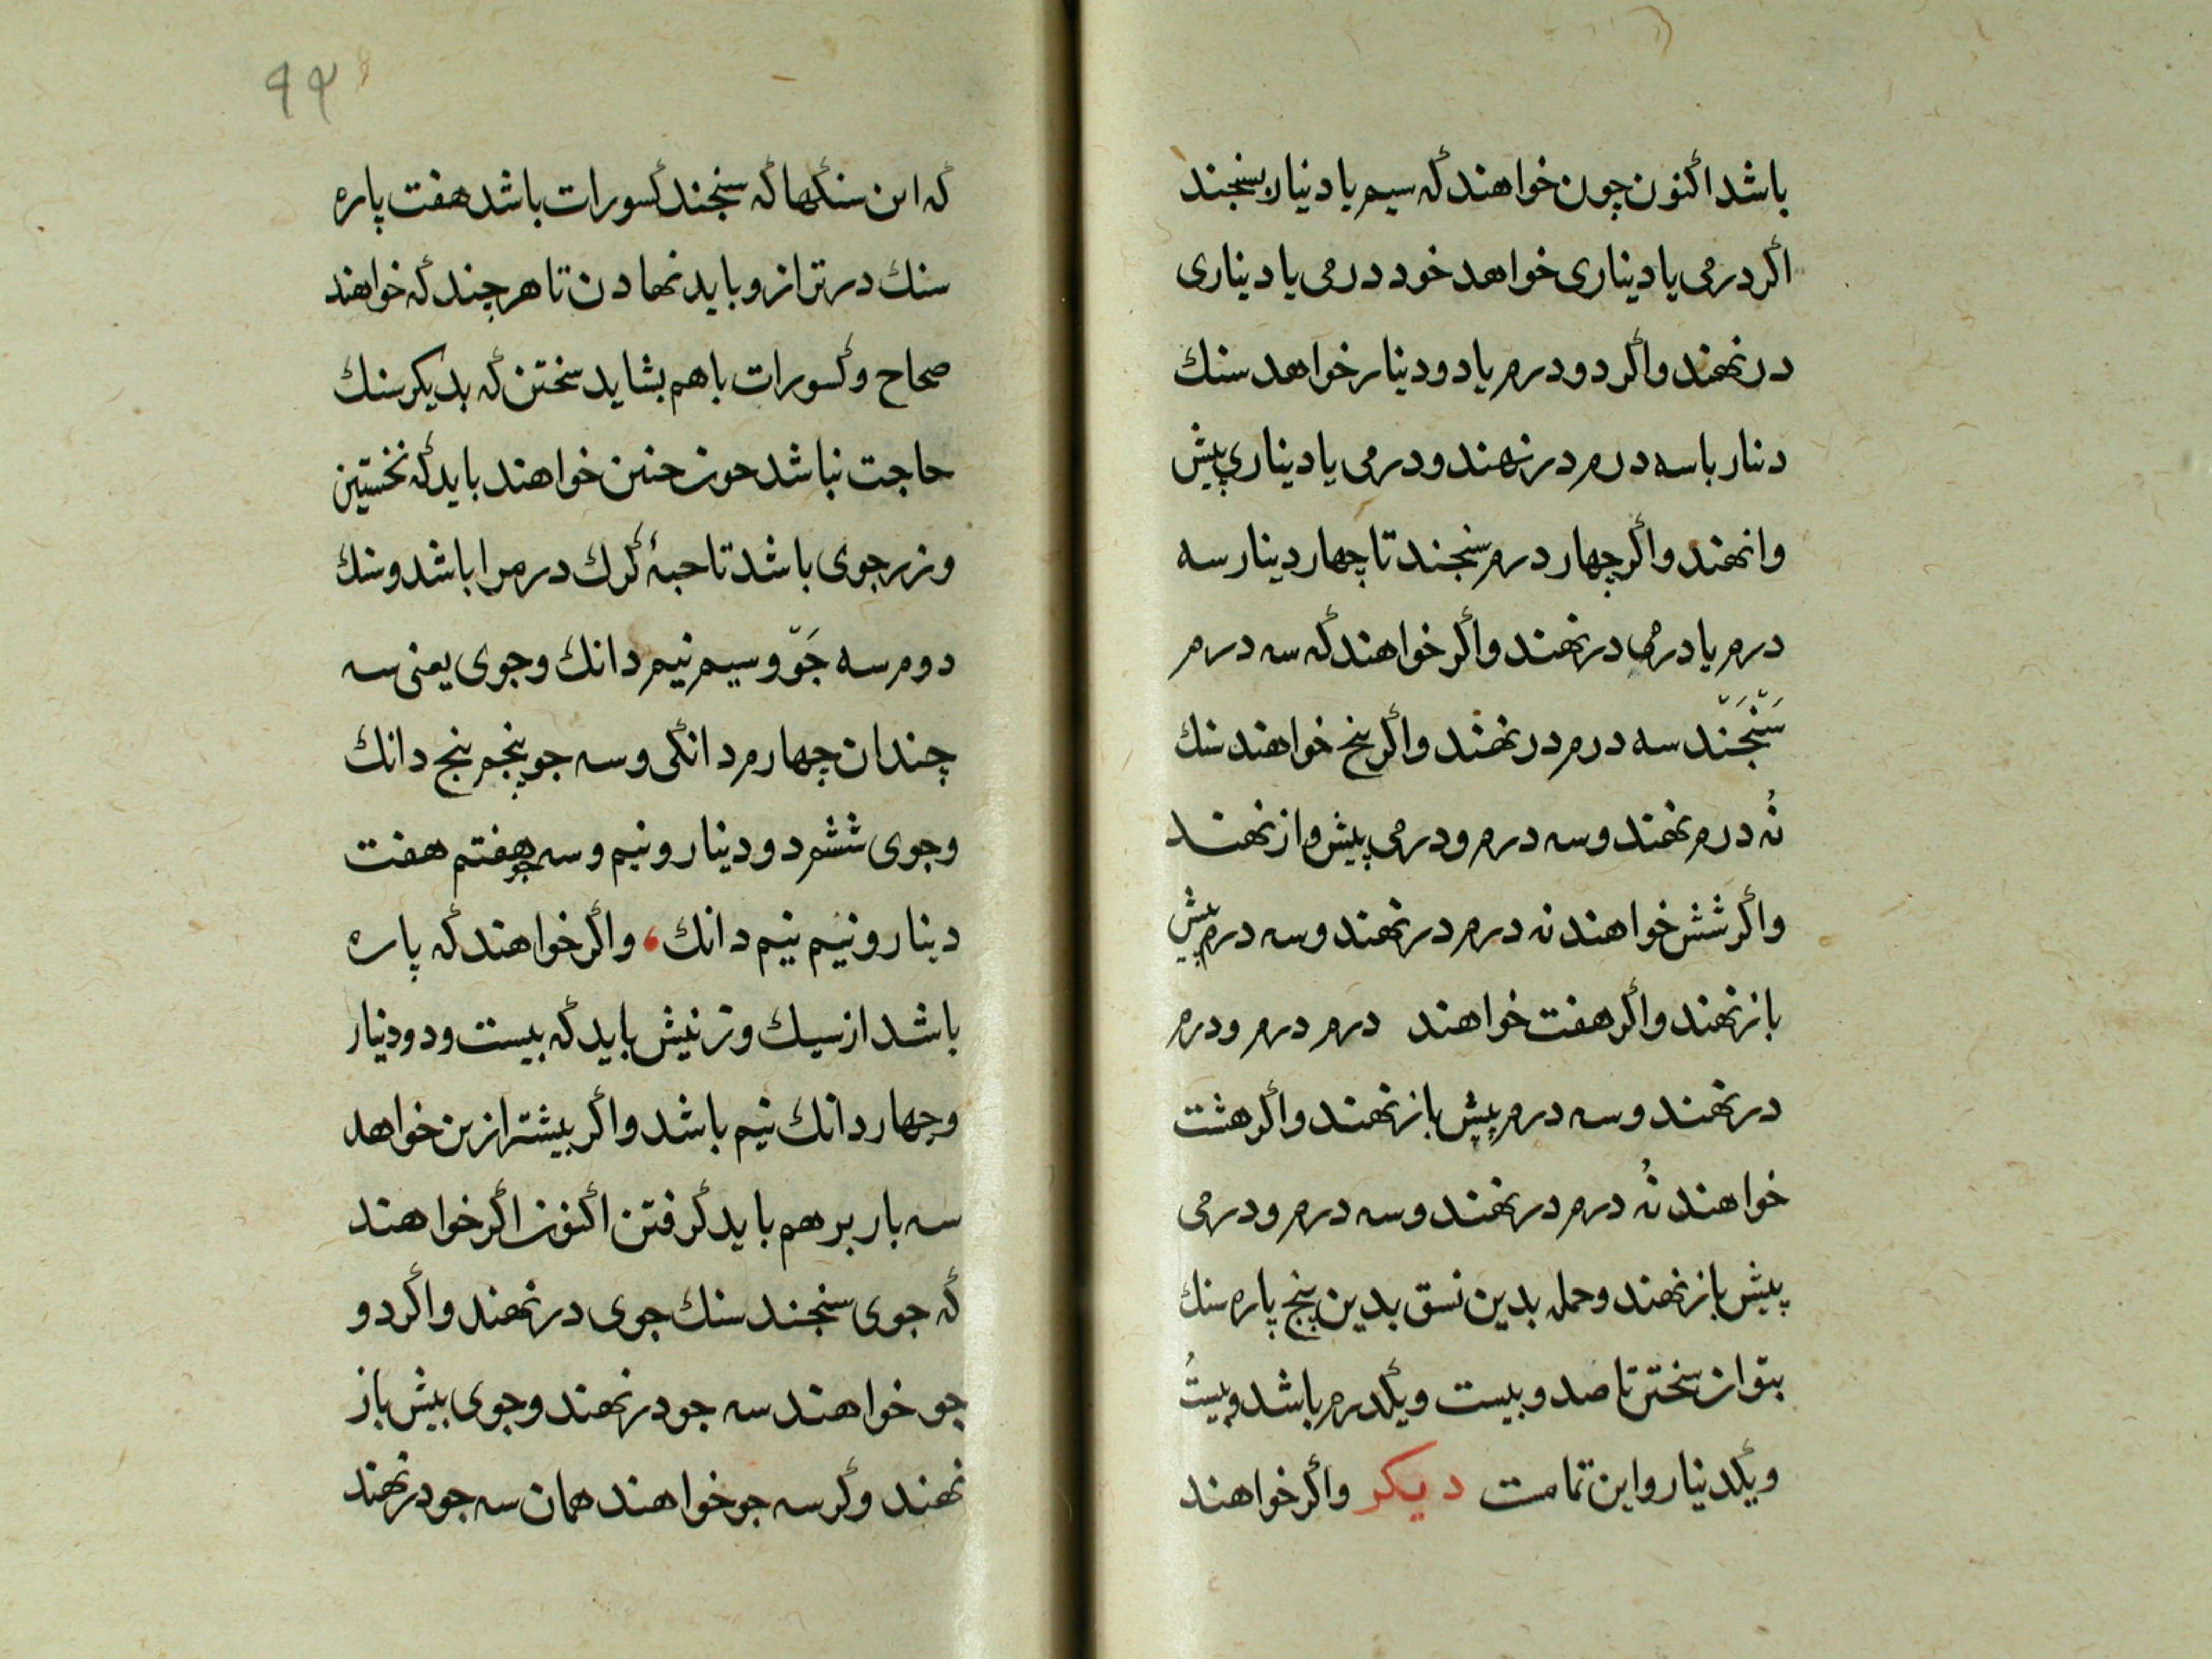 باشد اکنون چون خواهند که سیم یا دینار بسنجند
اگر درمی یا دیناری خواهد خود درمی یا دیناری
در نهند واکر دو درم یا دو دینار خواهد سنك
دنار با سه درم در نهند و درمی یا دیناری پیش
وا نهند واکر چهار درم سنجند تا چهار دینار سه
درم یا درمی در نهند واکر خواهند که سه درم
سَنْجَنَد سه درم در نهند واکر پنج خواهند سنك
نُه درم نهند و سه درم و درمی پیش واز نهند
واکر شش خواهند نه درم در نهند و سه درم پیش
باز نهند واکر هفت خواهند درم درم و درم
در نهند و سه درم پیش باز نهند واکر هشت
خواهند نُه درم در نهند و سه درم و درمی
پیش باز نهند و حمله بدین نسق بدین پنج پاره سنك
بتوان سختن تا صد و بیست و یکدرم باشد و بیستُ
و یکدنیار و این تمامت دیکر واکر خواهند
۹۴
که این سنکها که سنجند کسورات باشد هفت پاره
سنك در ترازو باید نهادن تا هر چند که خواهند
صحاح و کسورات با هم بشاید سختن که بدیکر سنك
حاجت نباشد حون حنین خواهند باید که نخستین
وزر جوی باشد تا حبهٔ کرك درم را باشد و سنك
دوم سه جَوّ و سیم نیم دانك و جوی یعنی سه
چندان چهارم دانکی و سه جو پنجم پنج دانك
و جوی ششم دو دینار و نیم و سه جو هفتم هفت
دینار و نیم نیم دانك ، واکر خواهند که پاره
باشد از سیك وزنیش باید که بیست و دو دنیار
و چهار دانك نیم باشد واکر بیشتر ازین خواهد
سه بار بر هم باید کرفتن اکنون اکر خواهند
که جوی سنجند سنك جوی در نهند واکر دو
جو خواهند سه جو در نهند و جوی بیش باز
نهند وکر سه جو خواهند همان سه جو در نهند